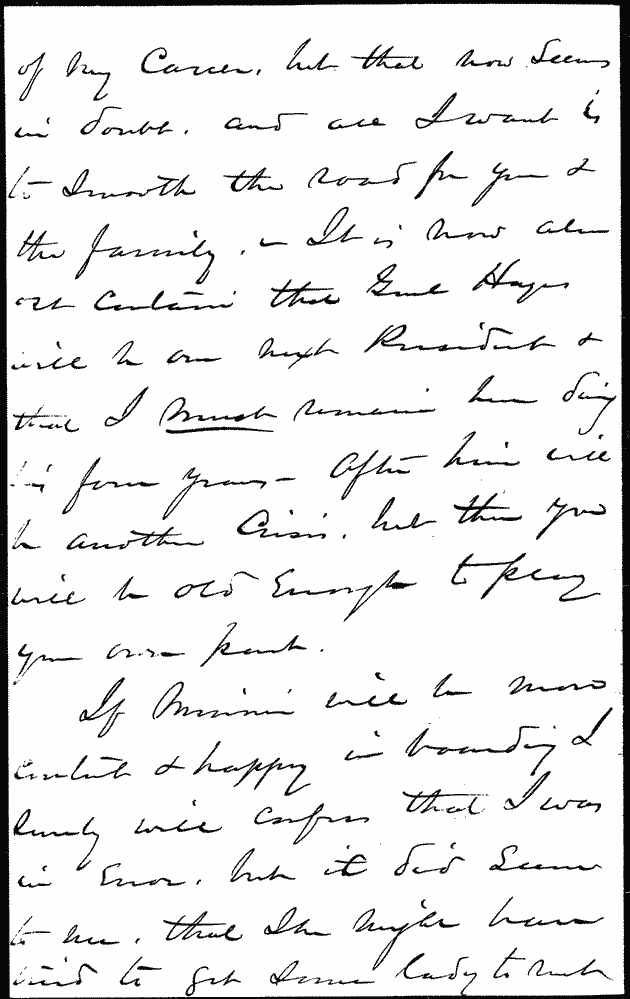 of my Career, but that now seems
in doubt, and all I want is
to smooth the road for you &
the family. - It is now alm
ost certain that Genl Hayes
will be our next President &
that I must remain here duing
his four years - After him will
be another Crisis, but then you
will be old Enough to play
your own part.
If Minnie will be more
content & happy in boarding I
surely will confess that I was
in Error, but it did seem
to me, that She might have
tried to get some lady to rent